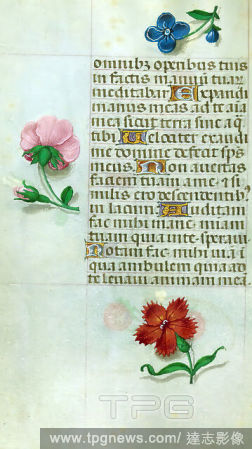 omnibz operibus tuis
in factis manuū tuar
meditabar Expandi
manus meas ad te aīa
mea sicut terra sine aq̄
tibi Velociter exaudi
me domine defecit sp̄s
meus Non avertas
faciem tuam a me et si
milis ero descendentib
in lacum Auditam
fac mihi mane miam
tuam quia in te speravi
Notam fac mihi viā ī
qua ambulem quia ad
te levavi animam meā
TPG
www.tpgnews.com/達志影像